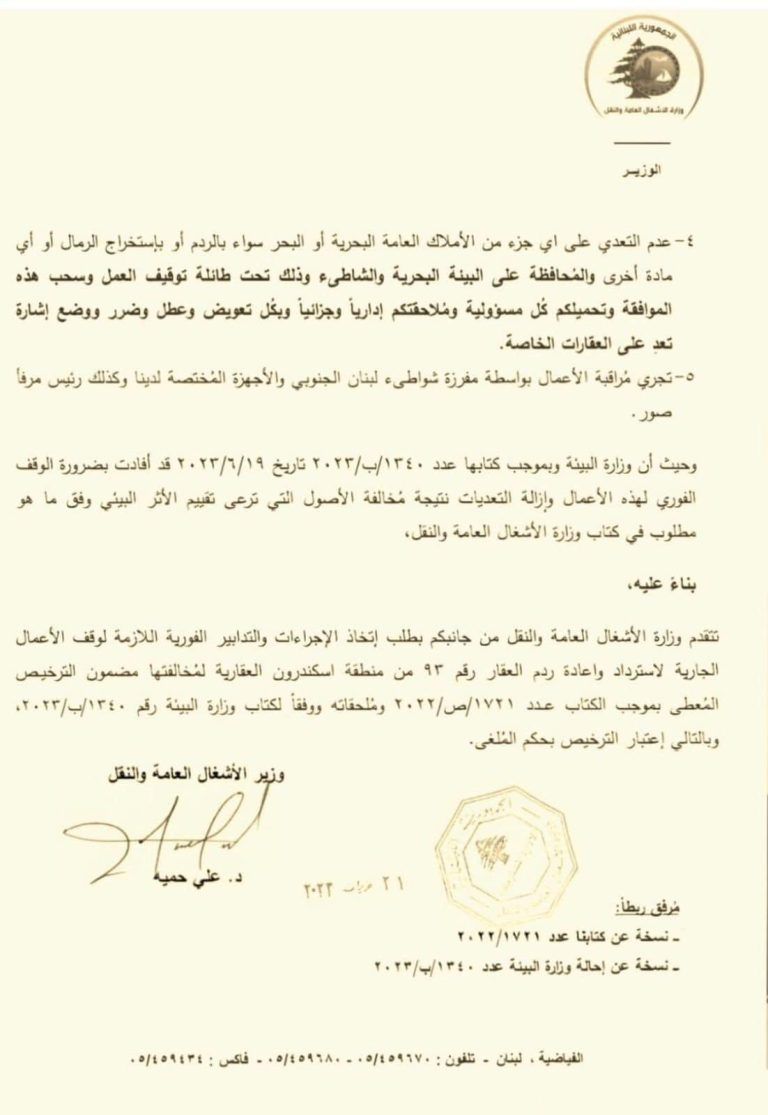 الجمهورية اللبنانية
وزارة الأشغال العامة والنقل
الوزيـر
٤- عدم التعدي على اي جزء من الأملاك العامة البحرية أو البحر سواء بالردم أو بإستخراج الرمال أو أي
مادة أخرى والمُحافظة على البيئة البحرية والشاطىء وذلك تحت طائلة توقيف العمل وسحب هذه
الموافقة وتحميلكم كُل مسؤولية ومُلاحقتكم إدارياً وجزائياً وبكُل تعويض وعطل وضرر ووضع إشارة
تعدِ على العقارات الخاصة.
٥- تجري مُراقبة الأعمال بواسطة مفرزة شواطىء لبنان الجنوبي والأجهزة المُختصة لدينا وكذلك رئيس مرفأ
صور.
وحيث أن وزارة البيئة وبموجب كتابها عدد ١٣٤٠/ب/٢٠٢٣ تاريخ ٢٠٢٣/٦/١٩ قد أفادت بضرورة الوقف
الفوري لهذه الأعمال وإزالة التعديات نتيجة مُخالفة الأصول التي ترعى تقييم الأثر البيئي وفق ما هو
مطلوب في كتاب وزارة الأشغال العامة والنقل،
بناءً عليه،
تتقدم وزارة الأشغال والنقل من جانبكم بطلب إتخاذ الإجراءات والتدابير الفورية اللازمة لوقف الأعمال
الجارية لاسترداد واعادة ردم العقار رقم ٩٣ من منطقة اسكندرون العقارية لمُخالفتها مضمون الترخيص
المُعطى بموجب الكتاب عـدد ١٧٢١/ص/٢٠٢٢ ومُلحقاته ووفقاً لكتاب وزارة البيئة رقم ١٣٤٠/ب/٢٠٢٣،
وبالتالي إعتبار الترخيص بحكم المُلغى.
وزير الأشغال العامة والنقل
د. علي حميه
٢١ حزيران ٢٠٢٣
مُرفق ربطاً:
ـ نسخة عن كتابنا عدد ٢٠٢٢/١٧٢١
ـ نسخة عن إحالة وزارة البيئة عدد ١٣٤٠/ب/٢٠٢٣
الفياضية ، لبنان - تلفون : ٠٥/٤٥٩٦٧٠ - ٠٥/٤٥٩٦٨٠ - فاكس : ٠٥/٤٥٩٤٣٤